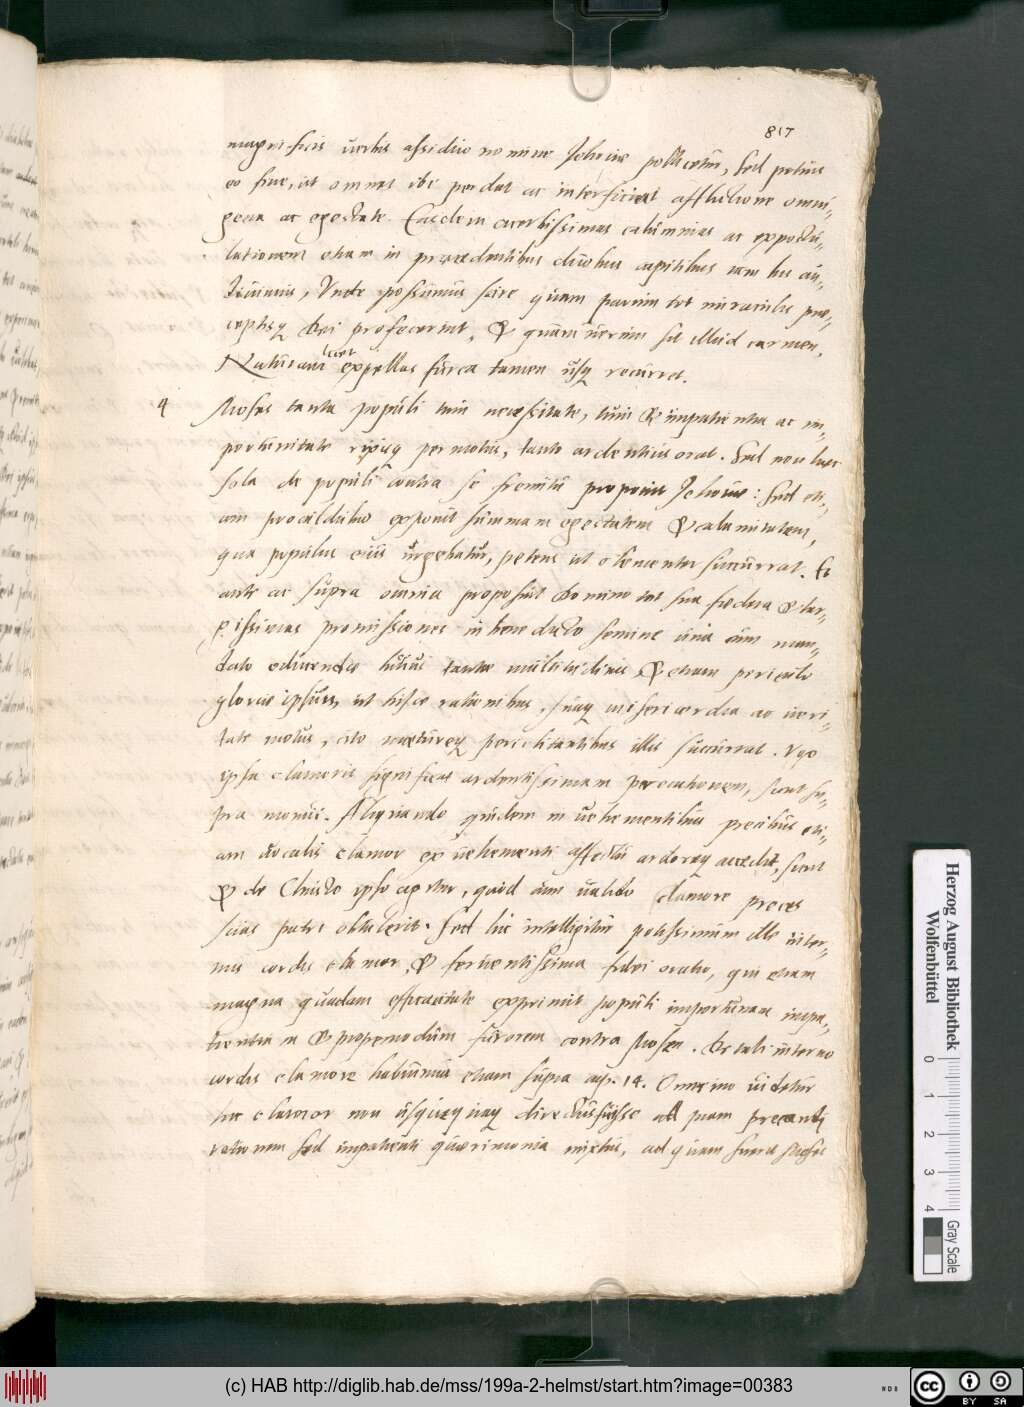 817
magnificis uerbis assiduo nomine Jehouae pollicetur, sed potius
eo fine, ut omnes ibi perdat ac interficiat afflictione omni-
gena ac egestate. Easdem acerbissimas calumnias ac expostu-
lationem etiam in praecedentibus duobus capitibus iam bis au-
diuimus, Unde possumus scire quam parum tot miracula prae-
ceptaq Dei profecerint, & quam uerum sit illud carmen,
Naturam licet expellas furca tamen usq recurret.
4 Moses tanta populi tum necessitate, tum & impatientia ac im-
portunitate eiusq permotus, tanto ardentius orat. Sed non haec
sola de populi contra se fremitu proponit Jehouae: sed eti-
am procul dubio exponit summam egestatem & calamitatem,
qua populus eius urgebatur, petens ut clementer succurrat. Et
ante ac supra omnia proposuit Domino tot sua foedera & lar-
gissimas promissiones in benedicto semine una cum man-
dato educendae huius tantae multitudinis & etiam periculo
gloriae ipsius, ut hisce rationibus, suaq misericordia ac ueri-
tate motus, cito matureq periclitantibus illis succurrat. Vox
ipsa clamoris significat ardentissimam precationem, sicut su-
pra monui. Aliquando quidem in uehementibus precibus eti-
am uocalis clamor ex uehementi affectu ardoreq accedit, sicut
& de Christo ipso agitur, quod cum ualido clamore preces
suas patri obtulerit. Sed hic intelligitur potissimum ille inter-
nus cordis clamor, & feruentissima fidei oratio, qui etiam
magna quadam efficacitate exprimit populi importunam impa-
tientiam & propemodum furorem contra Mosen. De tali interno
cordis clamore habuimus etiam supra cap. 14. Omnino uidetur
hic clamor non usquequaq directus fuisse ad piam precandi
rationem sed impatienti quaerimonia mixtus, ad quam fuerit
Herzog August Bibliothek
Wolfenbüttel
0 1 2 3 4
Gray Scale
(c) HAB http://diglib.hab.de/mss/199a-2-helmst/start.htm?image=00383
cc BY SA